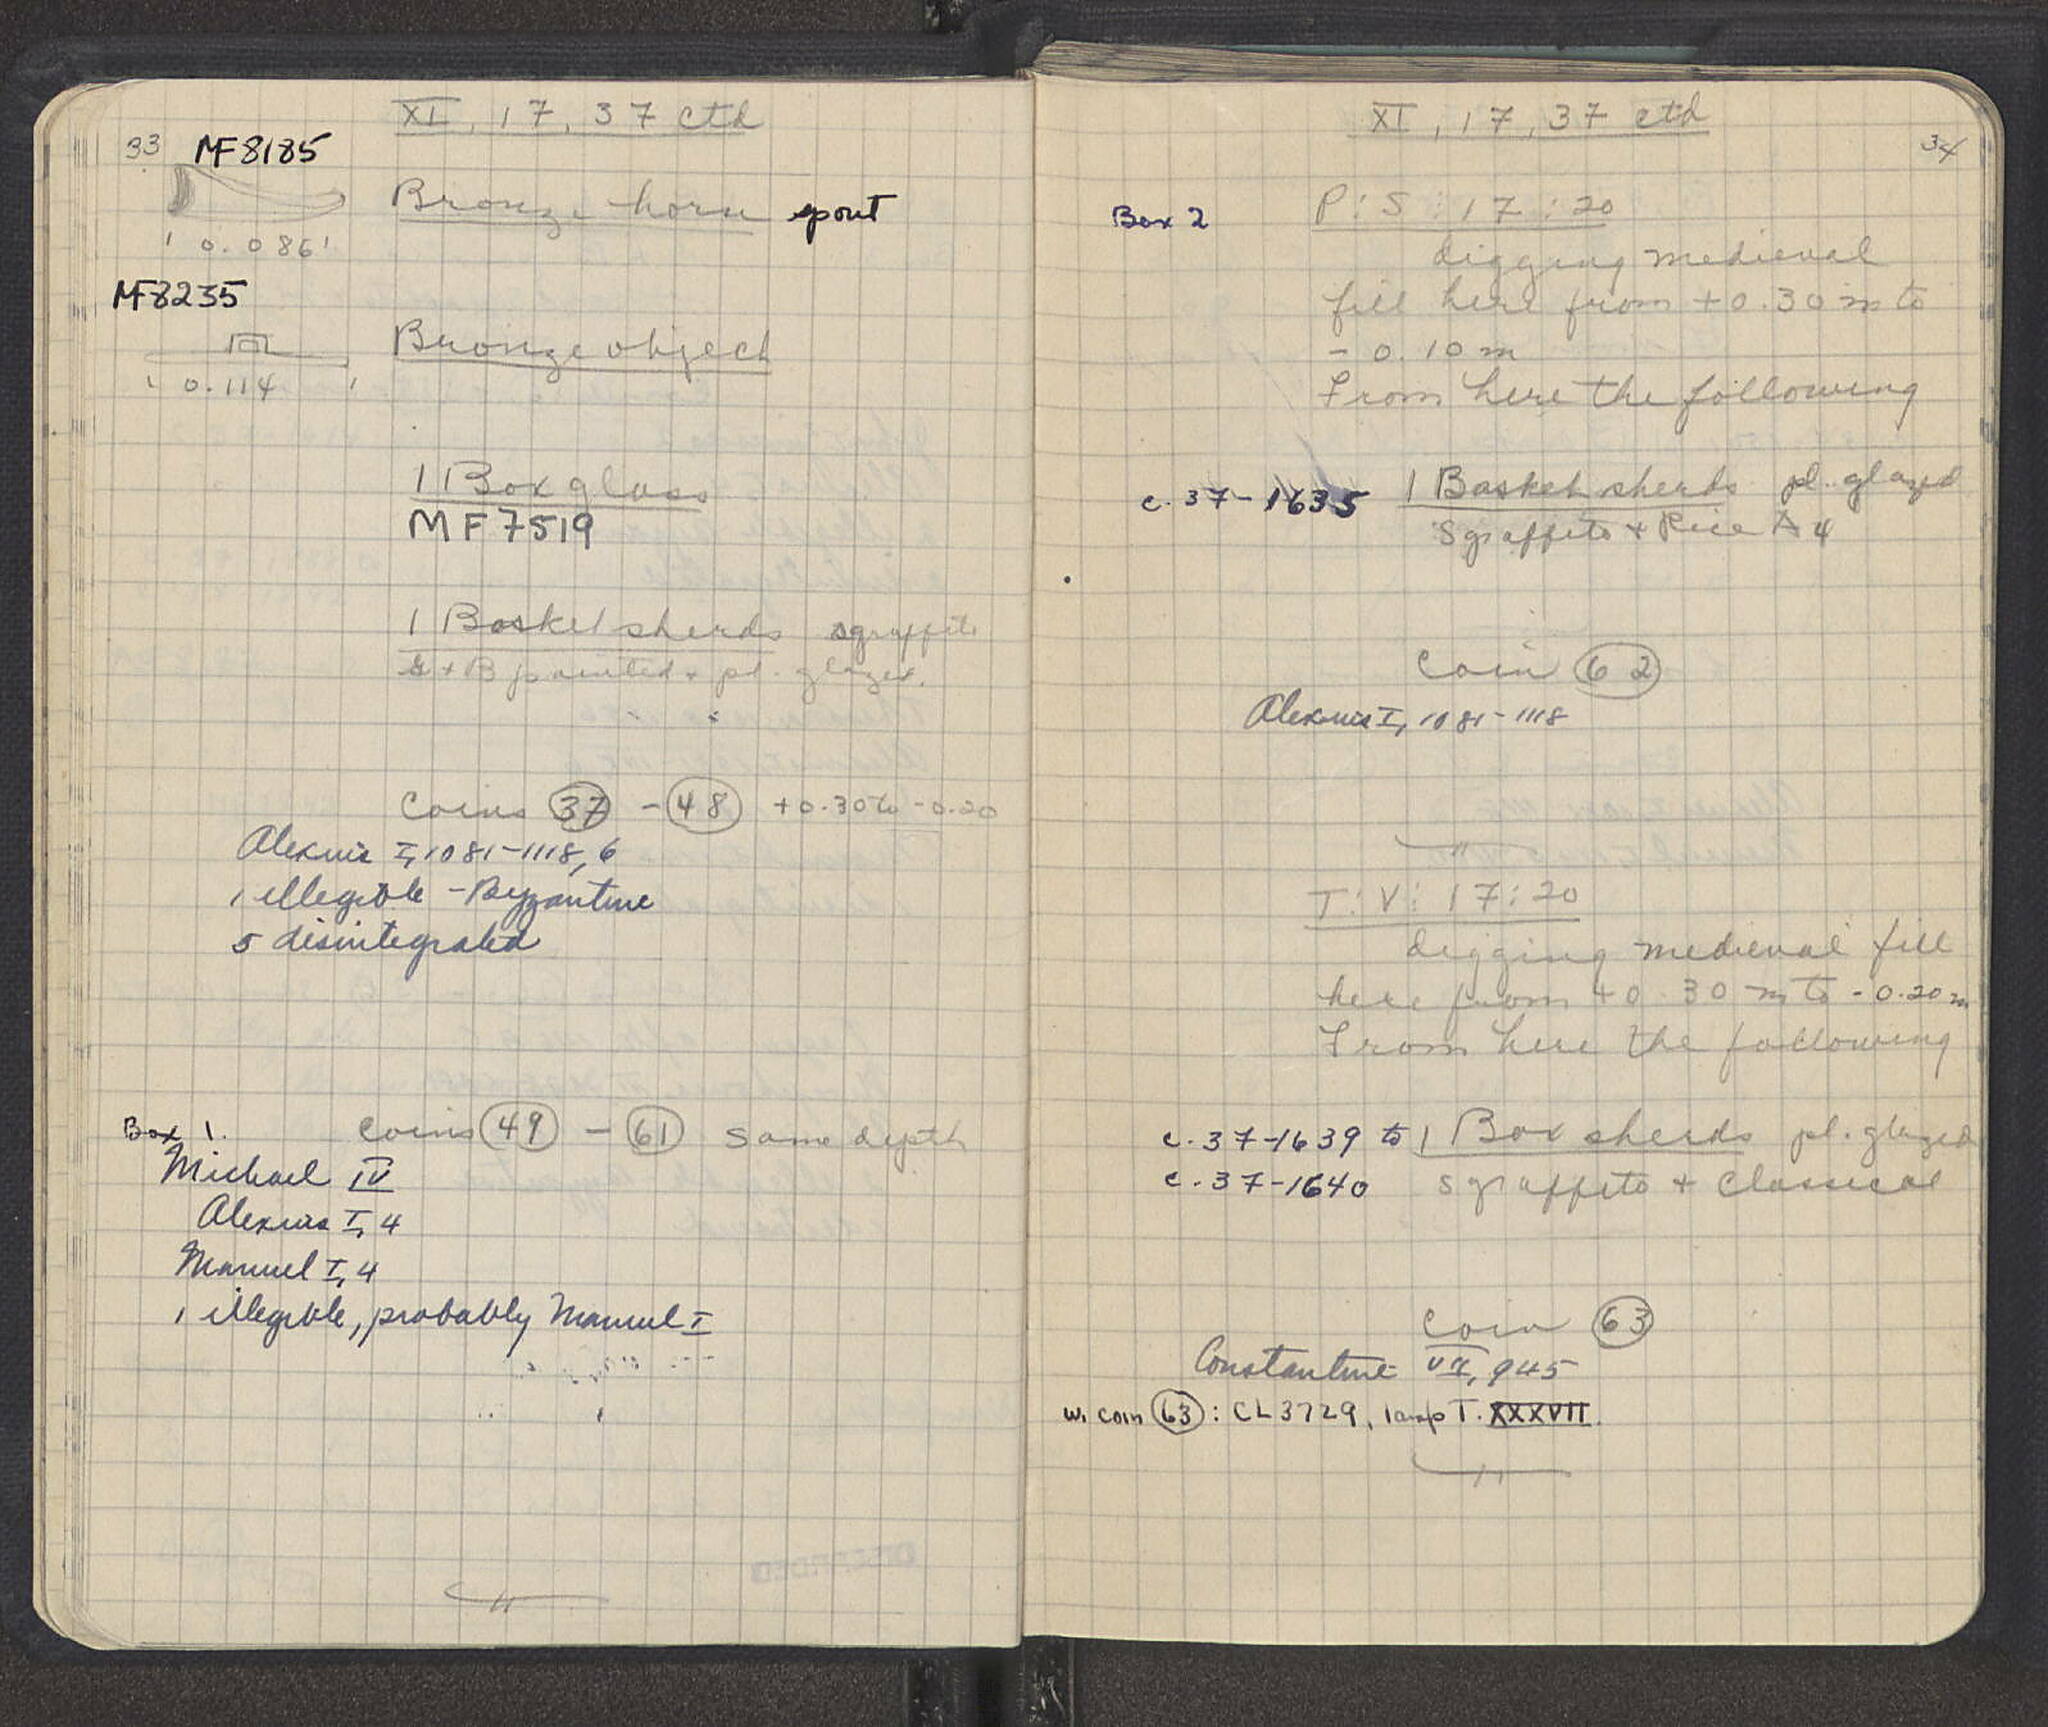 XI, 17, 37 ctd
33 MF8185
Bronze horn spout
0.086
MF8235
Bronze object
0.114
1 Box glass
MF7519
1 Basket sherds sgraffito
G + B painted + pl. glazed.
Coins 37 - 48 +0.30 to -0.20
Alexius I, 1081-1118, 6
1 illegible - Byzantine
5 disintegrated
Box 1. Coins 49 - 61 Same depth
Michael IV
Alexius I, 4
Manuel I, 4
1 illegible, probably Manuel I
XI, 17, 37 ctd
34
Box 2 P:S:17:20
digging medieval
fill here from +0.30 m to
- 0.10 m
From here the following
c. 37-1635 1 Basket sherds pl. glazed
Sgraffito + Rice A 4
Coin 62
Alexius I, 1081-1118
T:V:17:20
digging medieval fill
here from +0.30 m to -0.20 m
From here the following
c. 37-1639 to 1 Box sherds pl. glazed
c. 37-1640 sgraffito + Classical
Coin 63
Constantine VII, 945
w. coin 63: CL3729, lamp T. XXXVII.